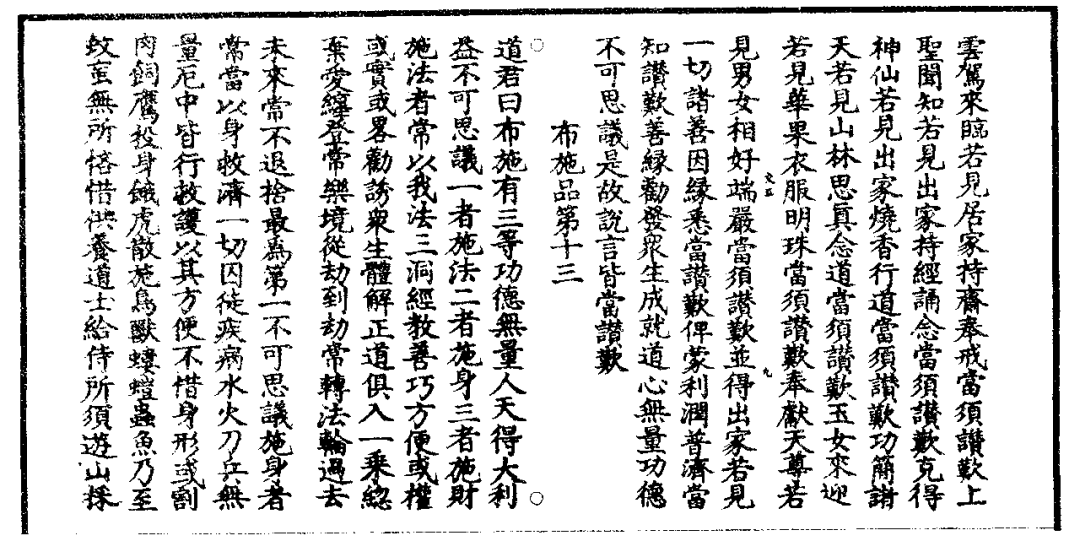 雲駕來臨若見居家持齋奉戒當須讃歎上
聖聞知若見出家持經誦念當須讃歎克得
神仙若見出家燒香行道當須讃歎功簡諸
天若見山林思真念道當須讃歎玉女來迎
若見華果衣服明珠當須讃歎奉獻天尊若
見男女相好端嚴當須讃歎並得出家若見
一切諸善因縁悉當讃歎俾蒙利潤普濟當
知讃歎善縁勸發衆生成就道心無量功德
不可思議是故說言皆當讃歎
布施品第十三
道君曰布施有三等功德無量人天得大利
益不可思議一者施法二者施身三者施財
施法者常以我法三洞經教善巧方便或權
或實或畧勸誘衆生體解正道俱入一乗綛
棄愛纏登常樂境從劫到劫常轉法輪過去
未來常不退捨最為第一不可思議施身者
常當以身救濟一切囚徒疾病水火刀兵無
量厄中皆行救護以其方便不惜身形或割
肉飼鷹投身餓虎散施鳥獸螻螘蟲魚乃至
蚊䖟無所悋惜供養道士給侍所須遊山採